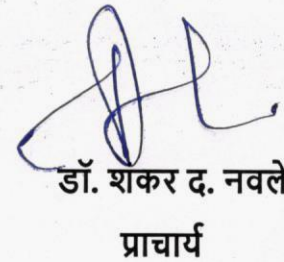 डॉ. शंकर द. नवले
प्राचार्य